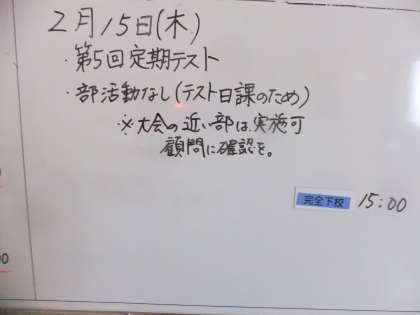 2月15日(木)
・第5回定期テスト
・部活動なし(テスト日課のため)
※大会の近い部は、実施可
顧問に確認を。
完全下校 15:00
00